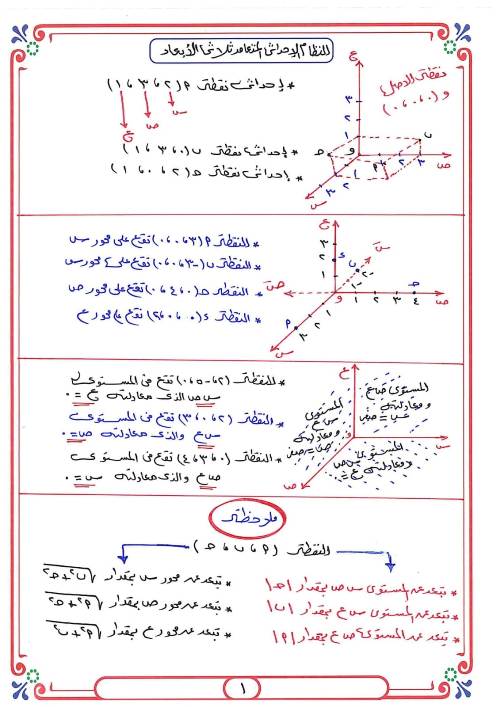 النظام الإحداثى المتعامد ثلاثى الأبعاد
نقطة الأصل
و (٠،٠،٠)
* إحداثى نقطة م (٢،٣،١)
س
ص
ع
* إحداثى نقطة ب (٠،٣،١)
* إحداثى نقطة ح (٢،٠،١)
* النقطة م (٣،٠،٠) تقع على محور س
* النقطة ب (-٣،٠،٠) تقع على محور س
* النقطة ح (٠،٤،٠) تقع على محور ص
* النقطة ء (٠،٠،٢) تقع على محور ع
* النقطة (٢،-٥،٠) تقع فى المستوى
س ص الذى معادلته ع = ٠
* النقطة (٢،٠،٣) تقع فى المستوى
س ع والذى معادلته ص = ٠
* النقطة (٠،٣،٤) تقع فى المستوى
ص ع والذى معادلته س = ٠
المستوى ص ع
ومعادلته
س = صفر
المستوى
س ع
ومعادلته
ص = صفر
المستوى س ص
ومعادلته ع = ٠
ملاحظة
النقطة (م ، ب ، ح)
* تبعد عن المستوى س ص بمقدار |ح|
* تبعد عن المستوى س ع بمقدار |ب|
* تبعد عن المستوى ص ع بمقدار |م|
* تبعد عن محور س بمقدار √ب٢+ح٢
* تبعد عن محور ص بمقدار √م٢+ح٢
* تبعد عن محور ع بمقدار √م٢+ب٢
١